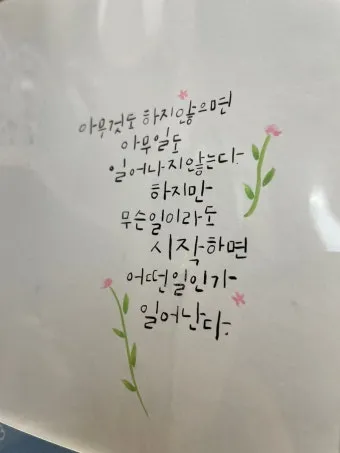 아무것도 하지않으면
아무일도
일어나지않는다.
하지만
무슨일이라도
시작하면
어떤일인가
일어난다.